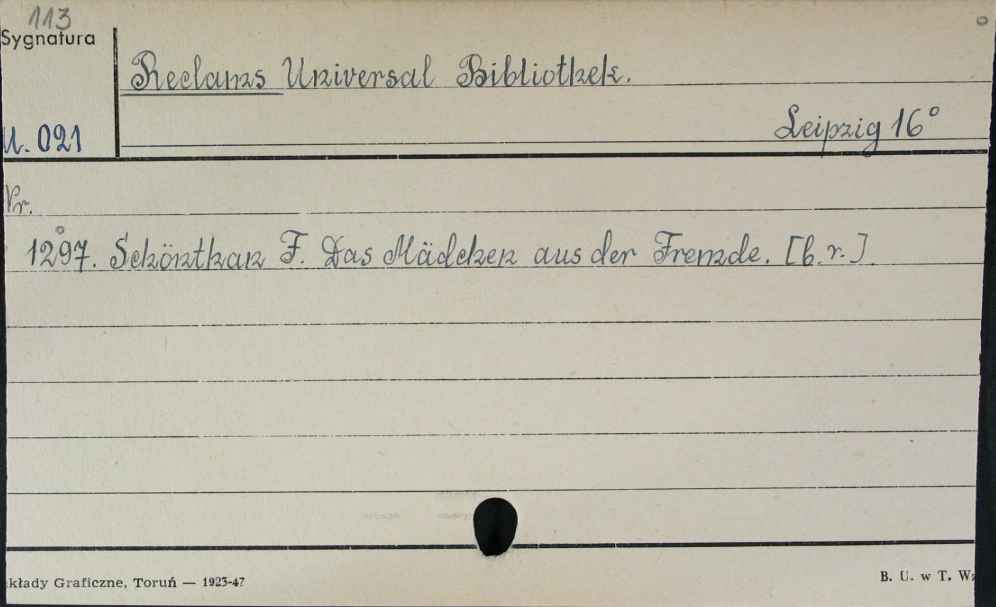 113
Sygnatura
Reclams Universal Bibliothek.
U. 021
Leipzig 16°
Nr.
1297. Schönthan F. Das Mädchen aus der Fremde. [b.r.]
kłady Graficzne, Toruń — 1925-47
B. U. w T. Wz